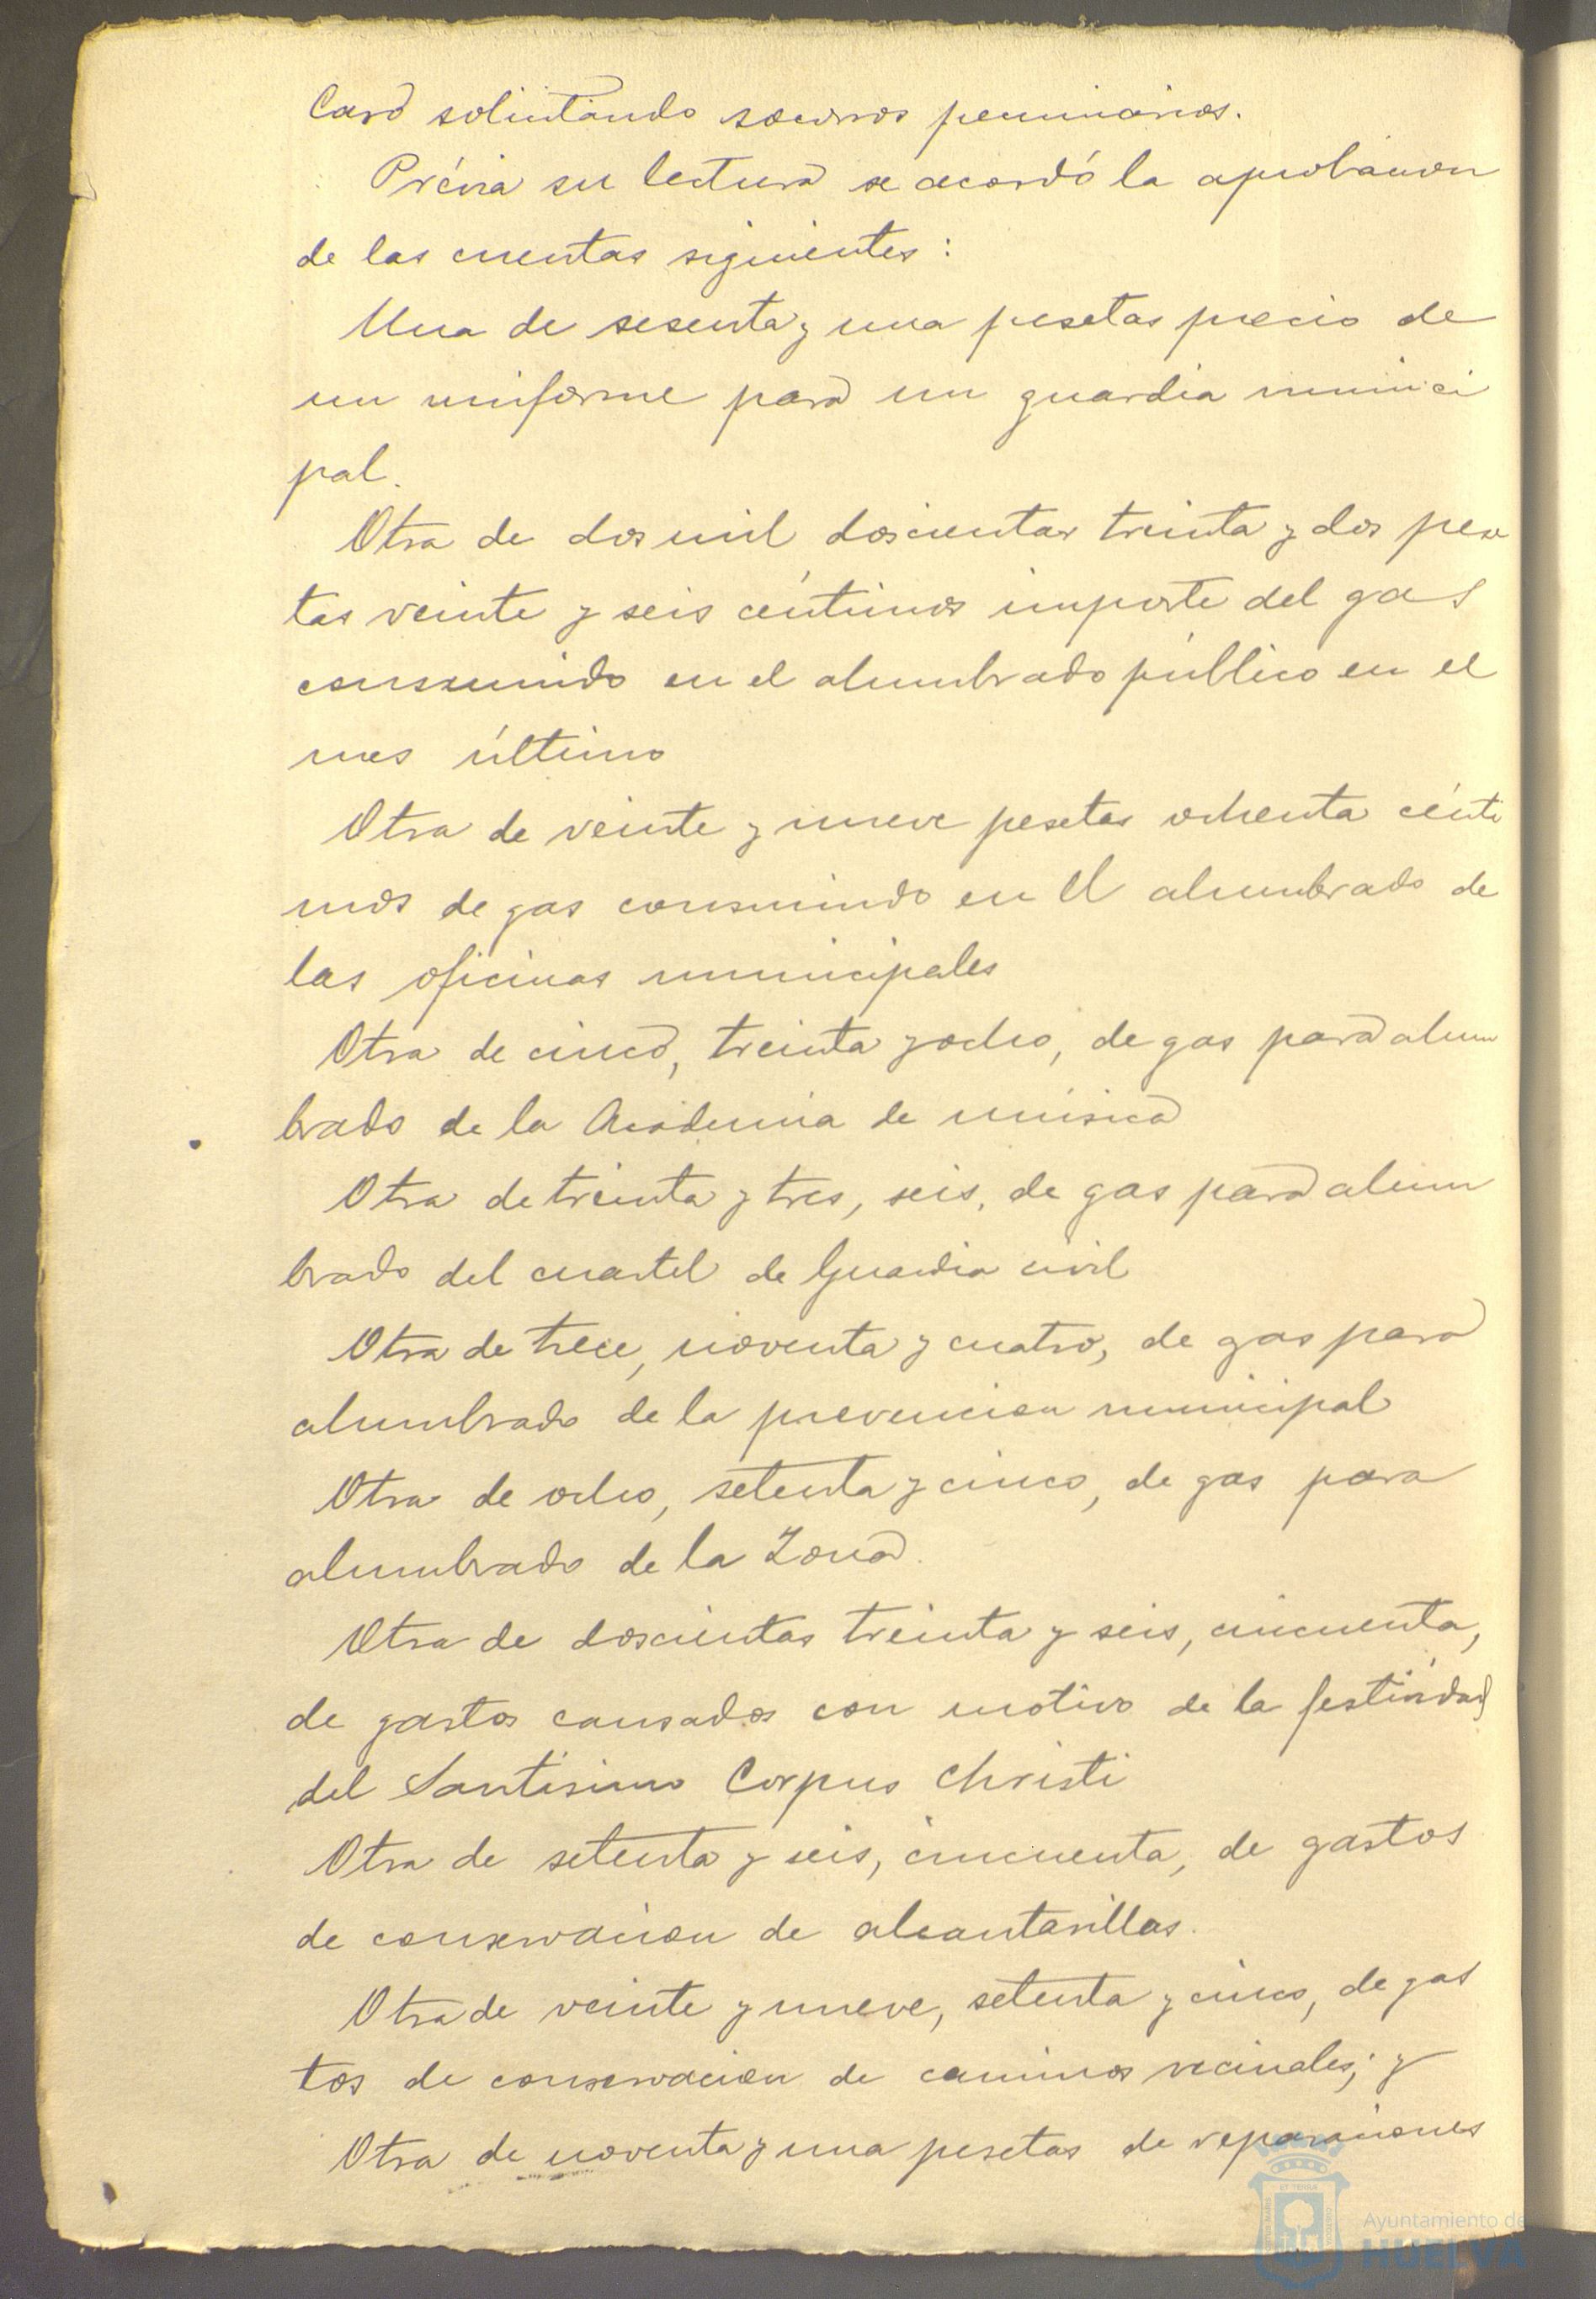 Caro solicitando socorros pecuniarios.
Prévia su lectura se acordó la aprobacion
de las cuentas siguientes:
Una de sesenta y una pesetas precio de
un uniforme para un guardia munici
pal.
Otra de dos mil doscientas treinta y dos pese
tas veinte y seis céntimos importe del gas
consumido en el alumbrado público en el
mes último
Otra de veinte y nueve pesetas ochenta cénti
mos de gas consumido en el alumbrado de
las oficinas municipales
Otra de cinco, treinta y ocho, de gas para alum
brado de la Academia de música
Otra de treinta y tres, seis, de gas para alum
brado del cuartel de Guardia civil
Otra de trece, noventa y cuatro, de gas para
alumbrado de la prevencion municipal
Otra de ocho, setenta y cinco, de gas para
alumbrado de la Zona.
Otra de doscientas treinta y seis, cincuenta,
de gastos causados con motivo de la festividad
del Santísimo Corpus Christi
Otra de setenta y seis, cincuenta, de gastos
de conservacion de alcantarillas.
Otra de veinte y nueve, setenta y cinco, de gas
tos de conservacion de caminos vecinales; y
Otra de noventa y una pesetas de reparaciones
Ayuntamiento de
HUELVA